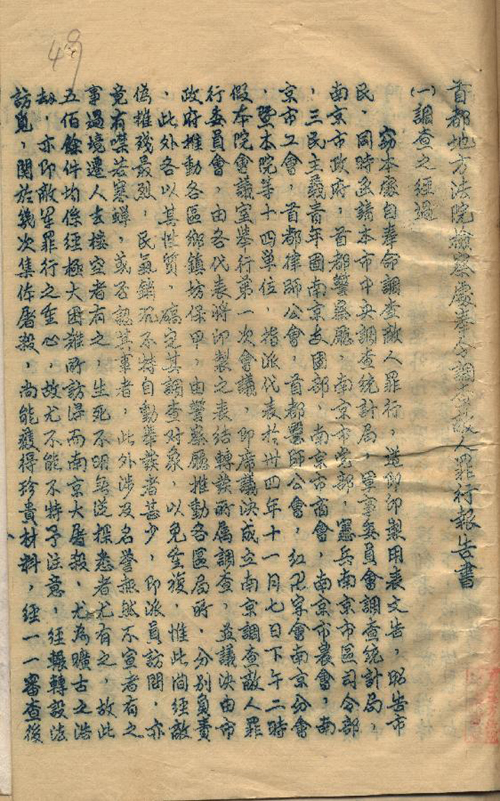 49
首都地方法院檢察處奉令調查敵人罪行報告書
(一)調查之經過
竊本處自奉命調查敵人罪行,遵即印製用表文告,昭告市
民,同時函請本市中央調查統計局,軍事委員會調查統計局,
南京市政府,首都警察廳,南京市黨部,憲兵南京市區司令部
,三民主義青年團南京支團部,南京市商會,南京市農會,南
京市工會,首都律師公會,首都醫師公會,紅卍字會南京分會
,暨本院等十四單位,指派代表於卅四年十一月七日下午二時
假本院會議室舉行第一次會議,即席議決成立南京調查敵人罪
行委員會,由各代表將印製之表結轉發所屬調查,並議決由市
政府推動各區鄉鎮坊保甲,由警察廳推動各區局所,分別負責
,此外各以其性質,確定其調查對象,以免重複,惟此間經敵
偽摧殘最烈,民氣銷沉,不特自動舉發者甚少,即派員訪問,亦
竟有噤若寒蟬,或否認其事者,此外涉及名譽無然不宣者有之
事過境遷人去樓空者有之,生死不明無從探悉者尤有之,故此
五佰餘件均係經極大困難所訪得而南京大屠殺,尤為曠古之浩
劫,亦即敵軍罪行之重心,故尤不能不特予注意,經輾轉設法
訪覓,關於幾次集体屠殺,尚能獲得珍貴材料,經一一審查後